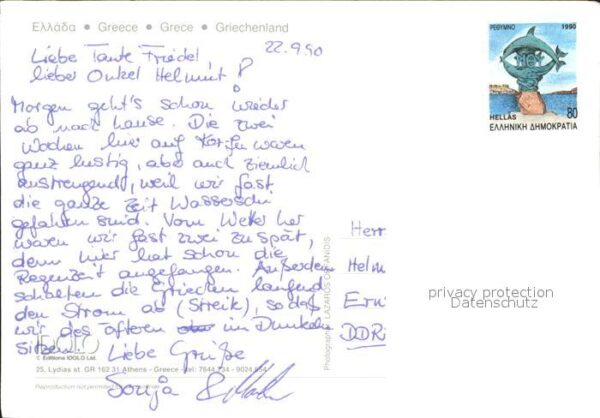 Ελλάδα • Greece • Grèce • Griechenland
22.9.90
Liebe Tante Friedel,
lieber Onkel Helmut!
Morgen geht's schon wieder
ab nach hause. Die zwei
Wochen hier auf Korfu waren
ganz lustig, aber auch ziemlich
anstrengend, weil wir fast
die ganze Zeit Wasserski
gefahren sind. Vom Wetter her
waren wir fast zwei zu spät,
denn hier hat schon die
Regenzeit angefangen. Außerdem
schalten die Griechen laufend
den Strom ab (Streik), so daß
wir des öfteren im Dunkeln
sitzen.
Liebe Grüße
Sonja &
ΡΕΘΥΜΝΟ 1990
HELLAS 80
ΕΛΛΗΝΙΚΗ ΔΗΜΟΚΡΑΤΙΑ
Herr
Helm
DDR
privacy protection
Datenschutz
IDOLO
© Editions IDOLO Ltd.
25, Lydias st. GR 162 31 Athens - Greece - tel: 7644 734 - 9024 654
Reproduction not permitted
Photographer: LAZAROS